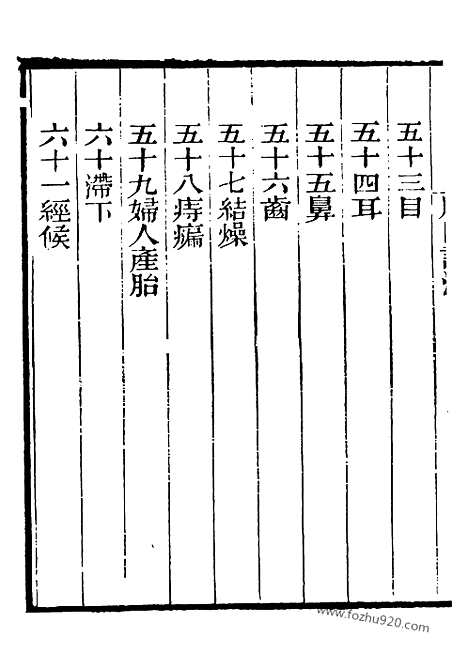 五十三目
五十四耳
五十五鼻
五十六齒
五十七結燥
五十八痔瘺
五十九婦人產胎
六十滯下
六十一經候
www.fozhu920.com